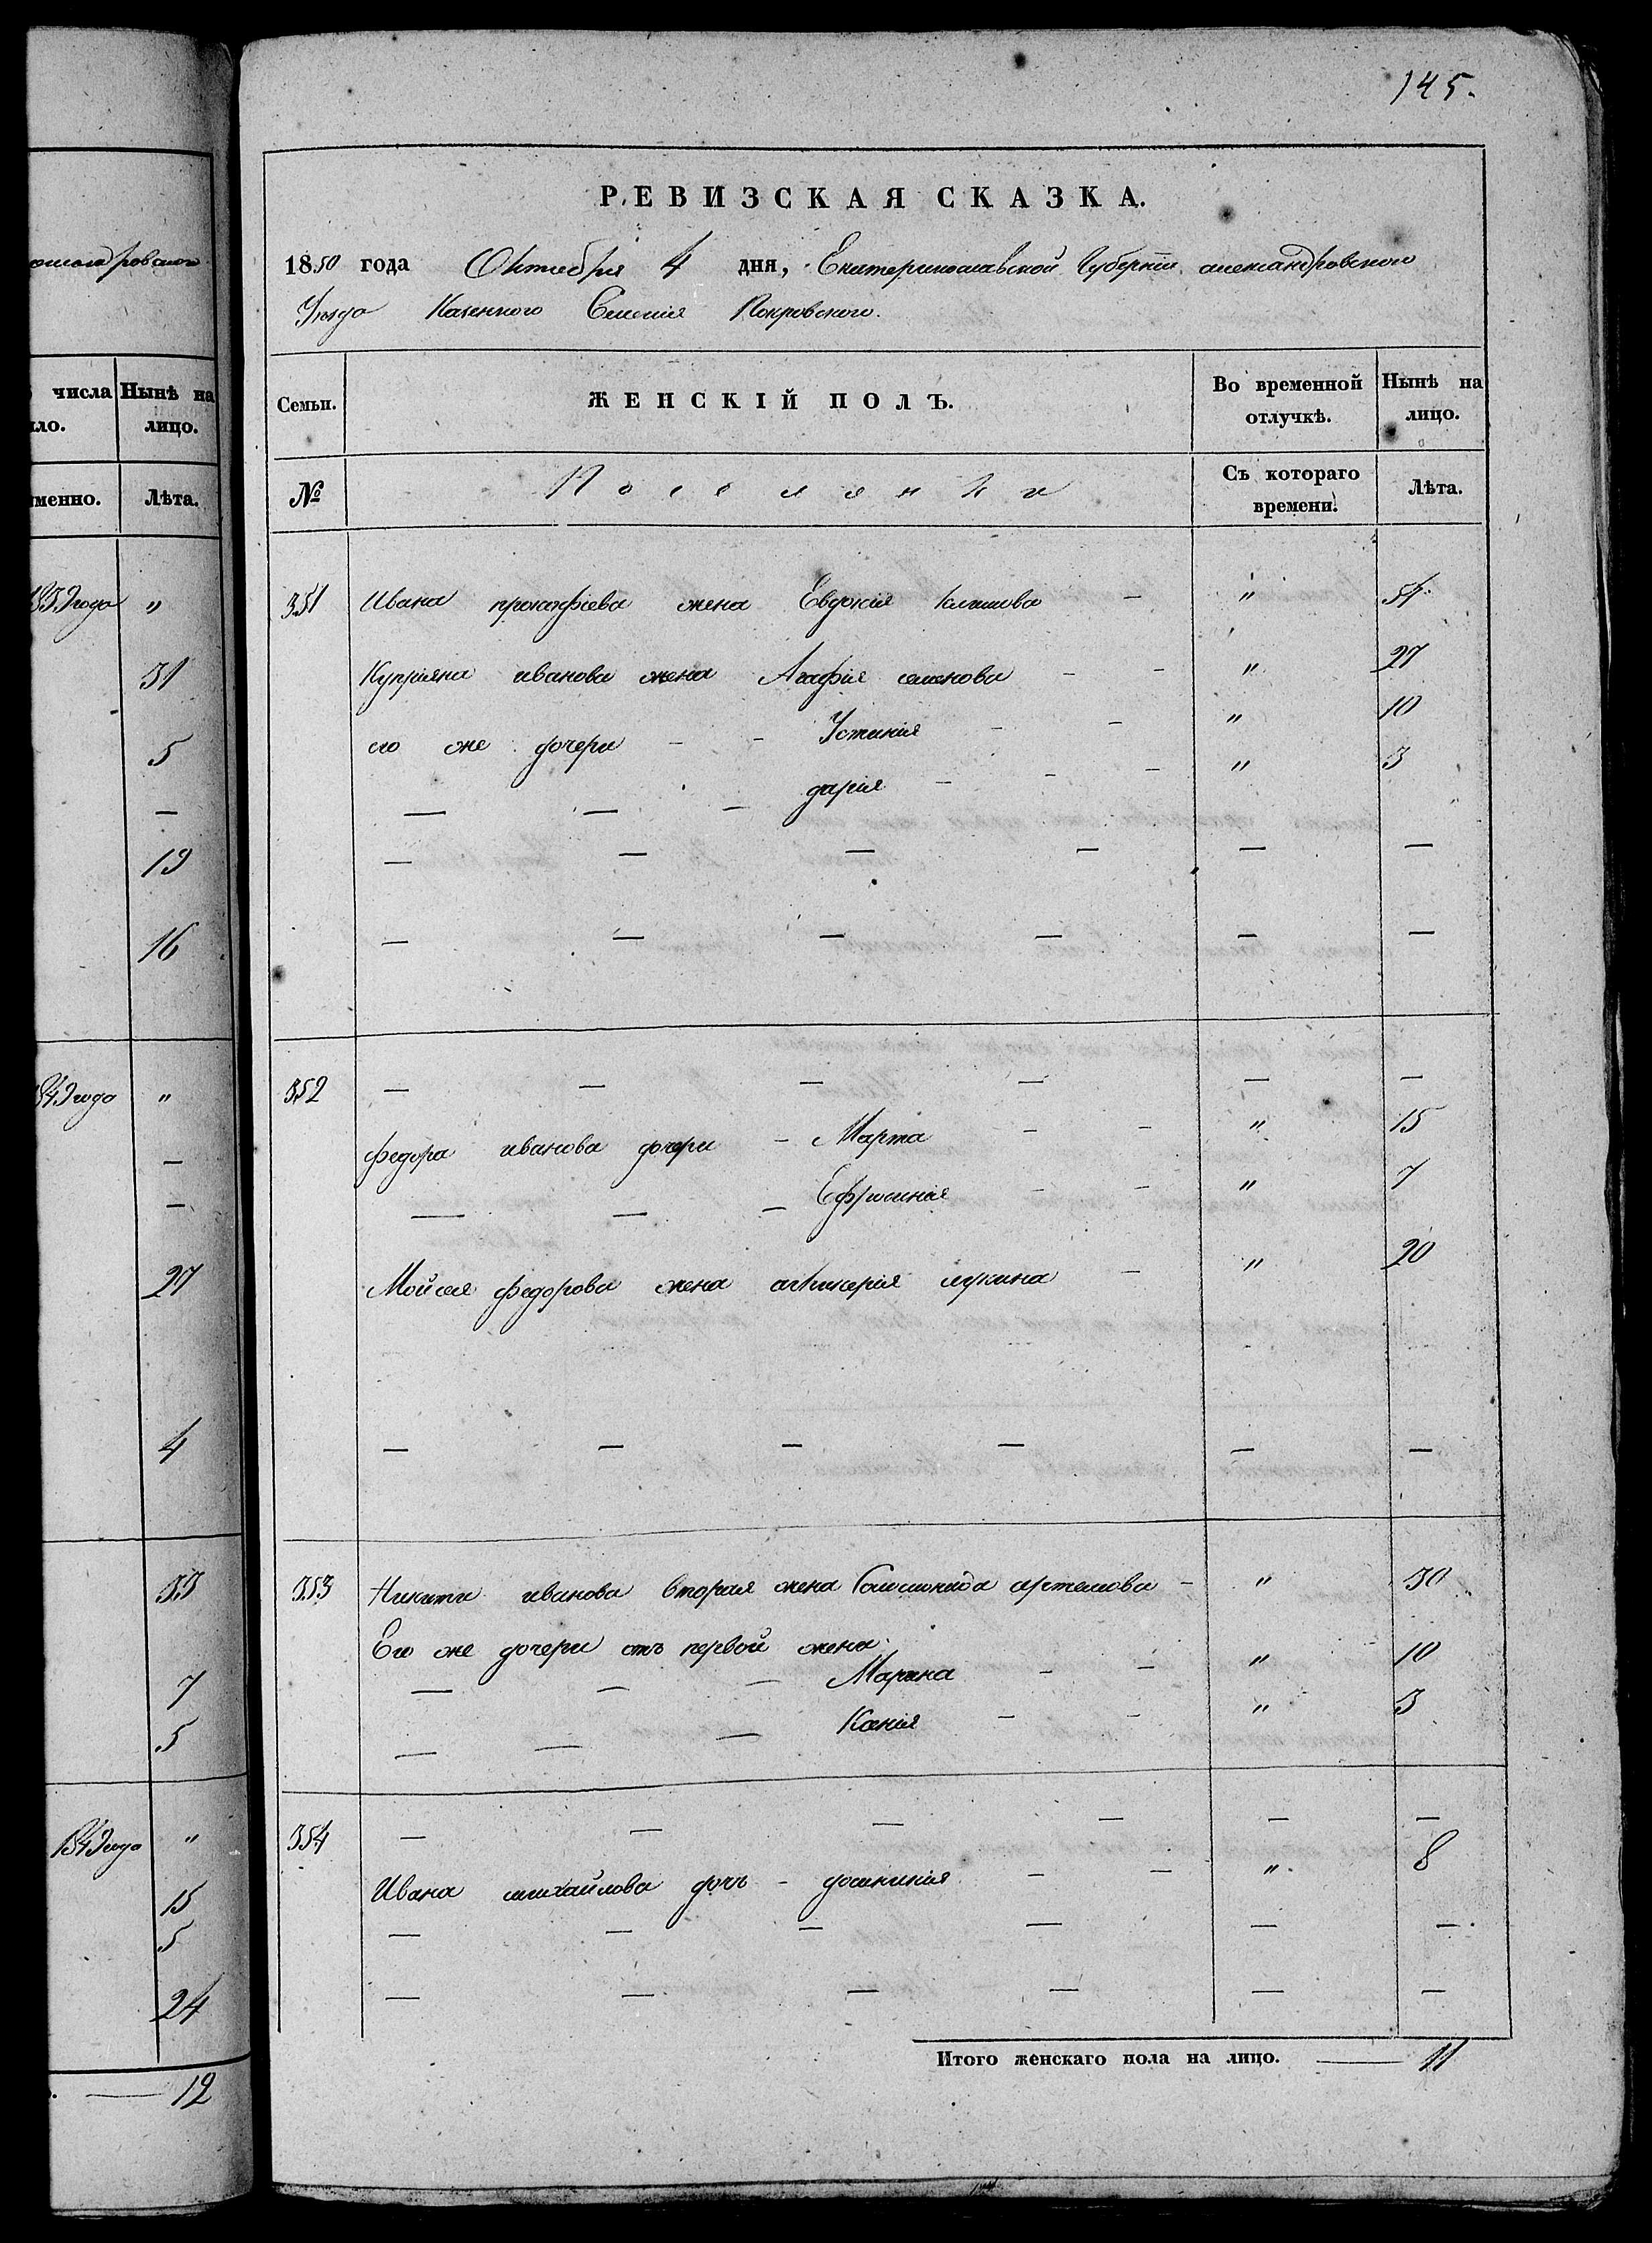 145.
РЕВИЗСКАЯ СКАЗКА.
1850 года Октября 4 дня, Екатеринославской Губернии александровского
Уезда Казенного Селения Покровского.
Семьи. ЖЕНСКІЙ ПОЛЪ. Во временной отлучкѣ. Нынѣ на лицо.
№ Поселянки Съ котораго времени. Лѣта.
351 Ивана прокофіева жена Евдокія климова — " 54
Купріяна иванова жена Агафія семенова — — " 27
его же дочери — — Устинія — — " 10
— — — дарія — — — " 3
— — — — — —
— — — — — —
352 — — — — — —
федора иванова дочери — Марта — — " 15
— — — Ефросинія — — " 7
Мойсея федорова жена гликерія лукина — " 20
— — — — — —
353 Никиты иванова вторая жена Соломонида артемова — " 30
Его же дочери отъ первой жены
— — — Марина — — " 10
— — — Ксенія — — " 3
354 — — — — — —
Ивана михайлова дочь — домникия — — " 8
— — — — — —
— — — — — —
Итого женскаго пола на лицо. — 11
числа Нынѣ на
ло. лицо.
именно. Лѣта.
1839 года "
31
5
—
19
16
1849 года "
—
—
27
4
33
7
5
1849 года "
15
5
24
— 12